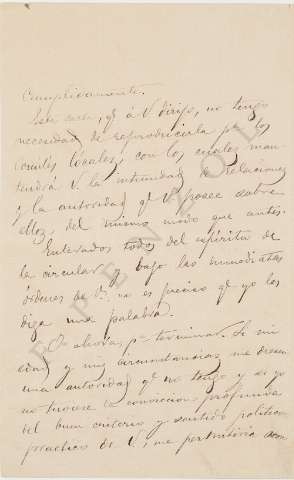 Cumplidamente.
Esta carta, qe á V. dirijo, no tengo
necesidad de reproducirla pa los
comités locales, con los cuales man-
tendrá V. la intimidad de relaciones
y la autoridad qe V. posee sobre
ellos, del mismo modo que antes.
Enterados todos del espíritu de
la circular y bajo las inmediatas
órdenes de V. no es preciso qe yo les
diga una palabra.
Y ahora, pa terminar. Si mi
edad y mis circunstancias me dieran
una autoridad qe no tengo y si yo
no tuviese la convicción profunda
del buen criterio y sentido político
práctico de V., me permitiría